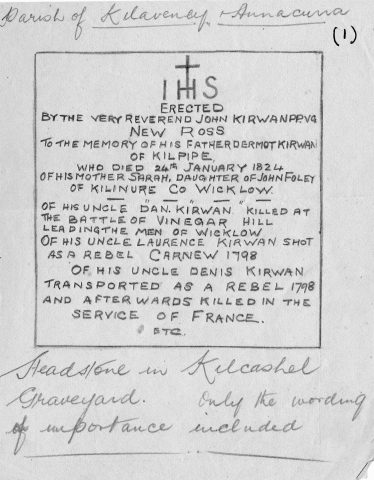 Parish of Kilaveney & Annacurra
(1)
IHS
ERECTED
BY THE VERY REVEREND JOHN KIRWAN PP.VG
NEW ROSS
TO THE MEMORY OF HIS FATHER DERMOT KIRWAN
OF KILPIPE,
WHO DIED 24TH JANUARY 1824
OF HIS MOTHER SARAH, DAUGHTER OF JOHN FOLEY
OF KILINURE CO WICKLOW.
OF HIS UNCLE "DAN. KIRWAN" KILLED AT
THE BATTLE OF VINEGAR HILL
LEADING THE MEN OF WICKLOW
OF HIS UNCLE LAURENCE KIRWAN SHOT
AS A REBEL CARNEW 1798
OF HIS UNCLE DENIS KIRWAN
TRANSPORTED AS A REBEL 1798
AND AFTERWARDS KILLED IN THE
SERVICE OF FRANCE.
ETC.
Headstone in Kilcashel
Graveyard. Only the wording
of importance included